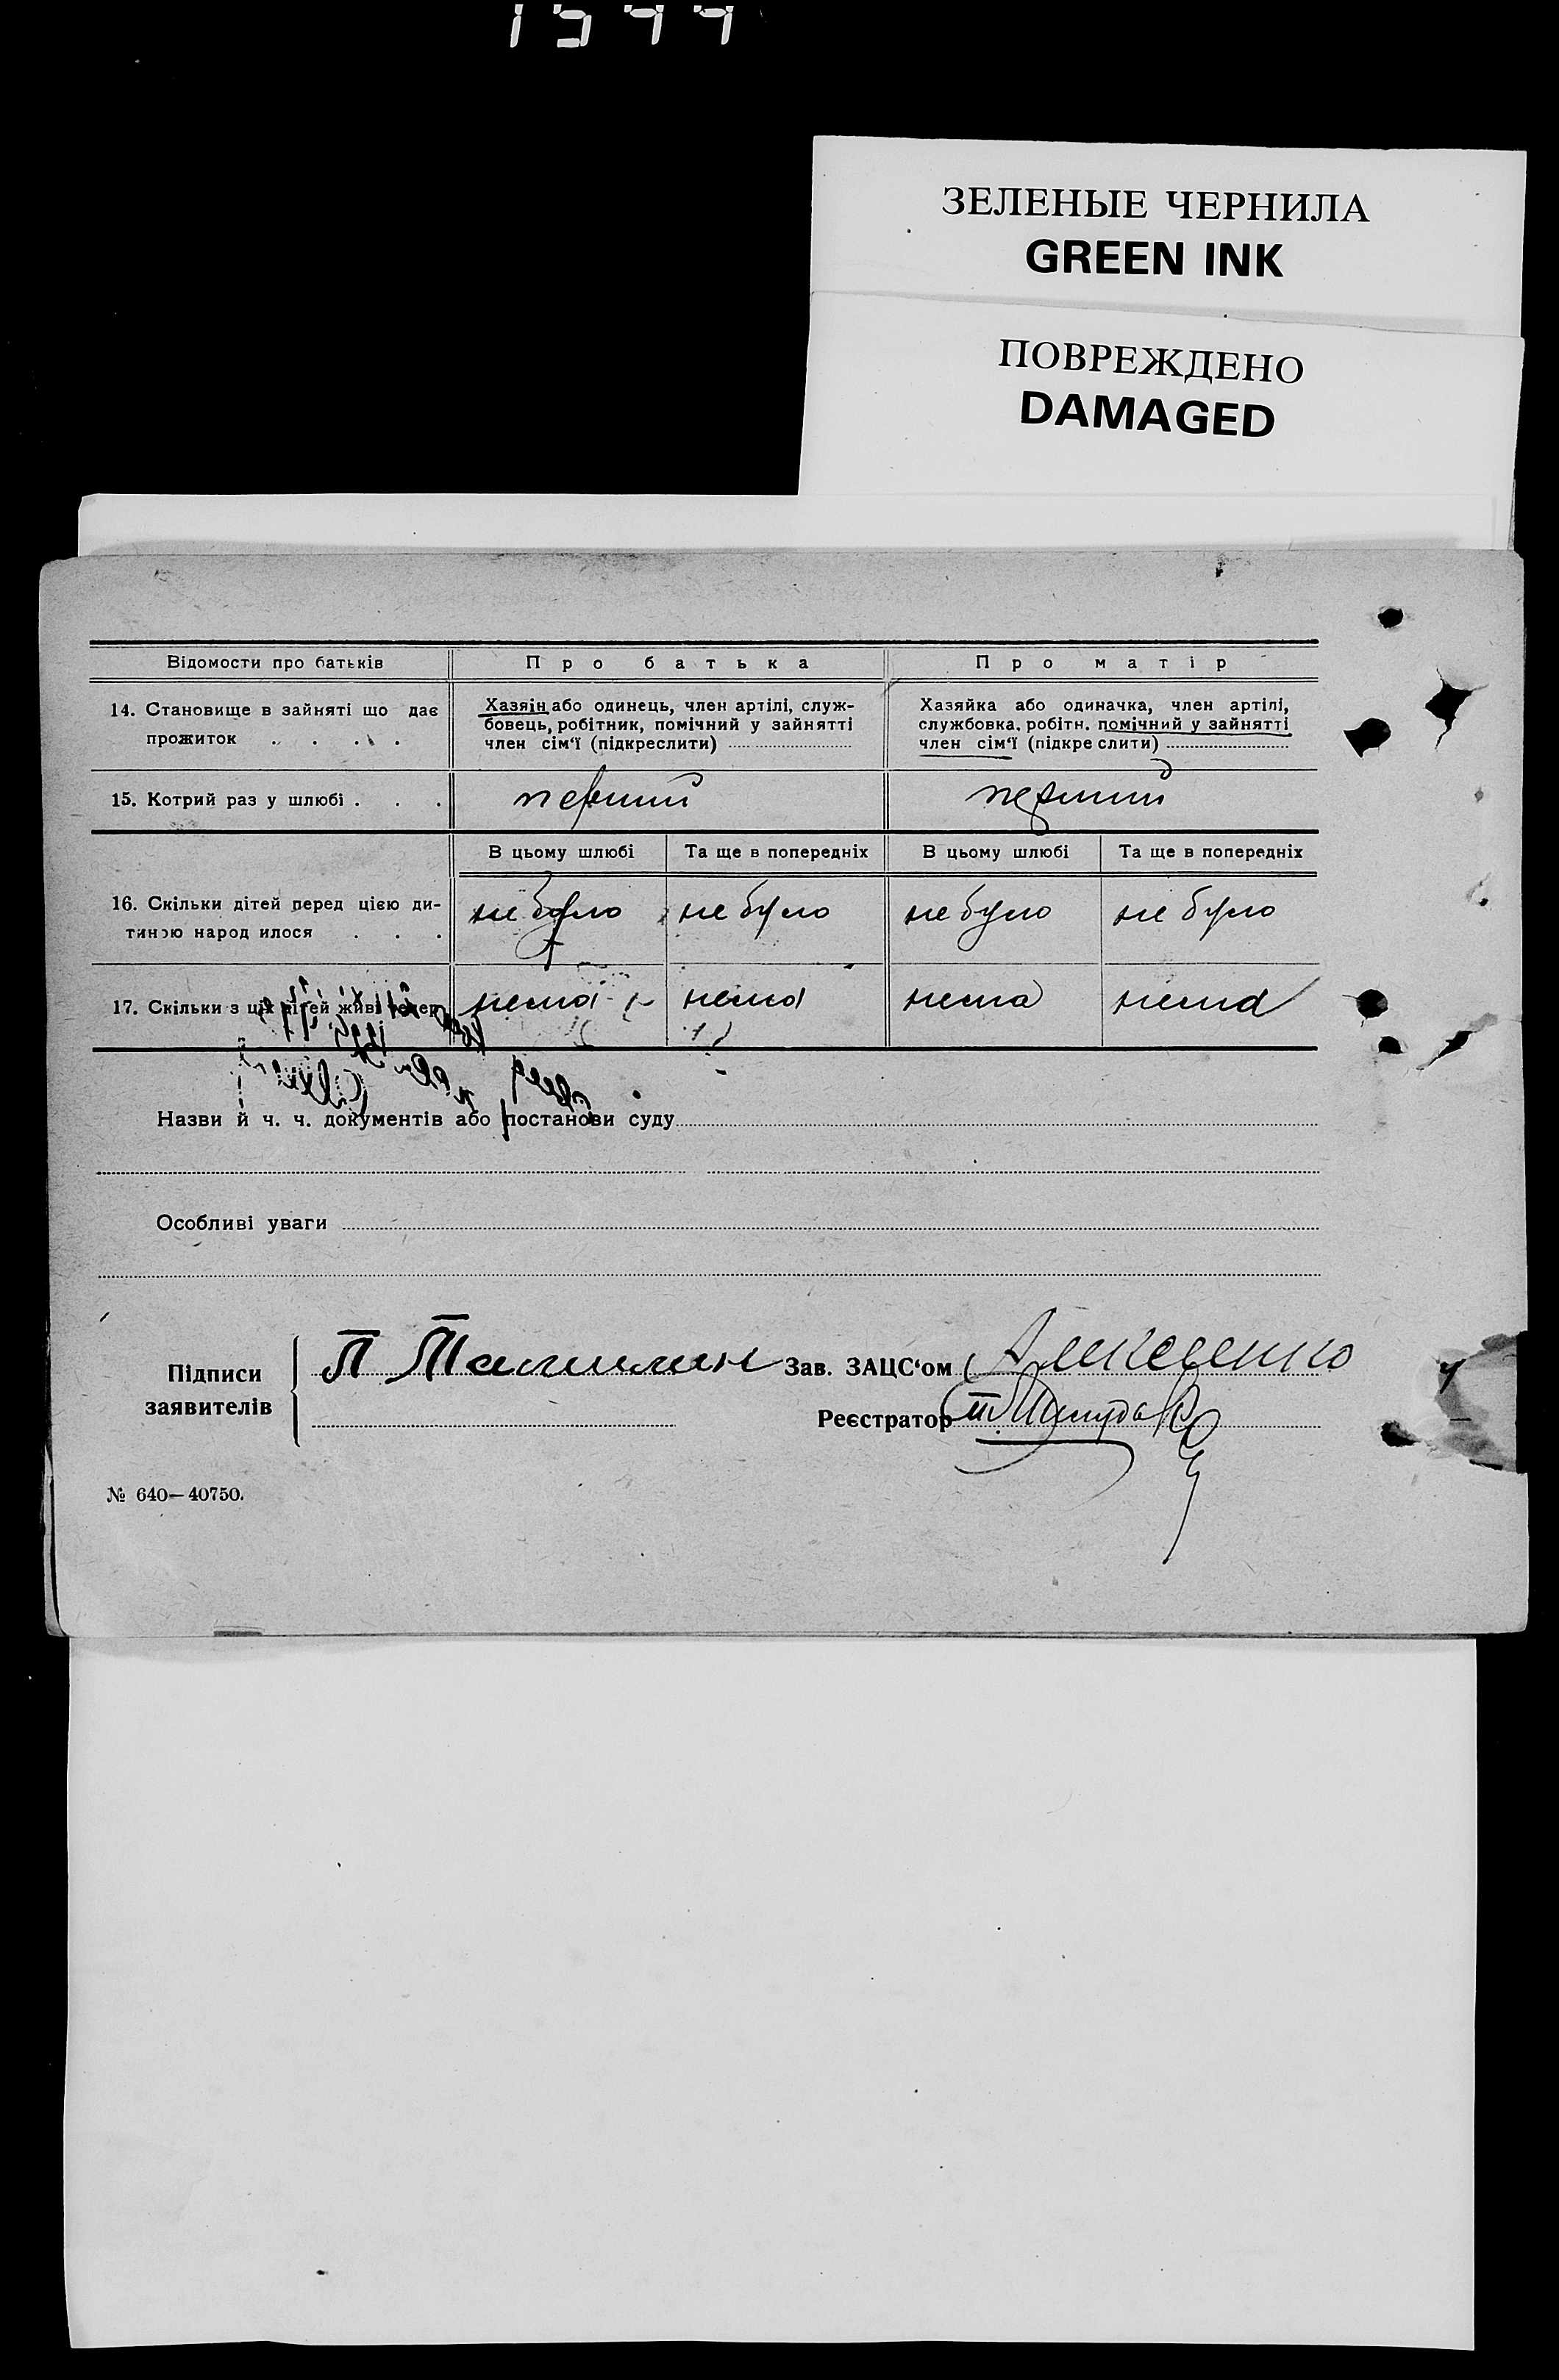 1944
ЗЕЛЕНЫЕ ЧЕРНИЛА
GREEN INK
ПОВРЕЖДЕНО
DAMAGED
Відомости про батьків Про батька Про матір
14. Становище в зайняті що дає прожиток . . . .
Хазяїн або одинець, член артілі, служ-
бовець, робітник, помічний у зайнятті
член сім'ї (підкреслити)
Хазяйка або одиначка, член артілі,
службовка, робітн. помічний у зайнятті
член сім'ї (підкреслити)
15. Котрий раз у шлюбі . . . перший перший
В цьому шлюбі Та ще в попередніх В цьому шлюбі Та ще в попередніх
16. Скільки дітей перед цією ди-
тиною народилося . . .
не було не було не було не було
17. Скільки з цїх дітей живі тепер нема нема нема нема
Назви й ч. ч. документів або постанови суду
Особливі уваги
Підписи
заявителів
П
Зав. ЗАЦС'ом
Реєстратор
№ 640—40750.